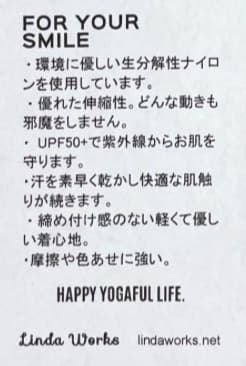 FOR YOUR
SMILE
・環境に優しい生分解性ナイロ
ンを使用しています。
・優れた伸縮性。どんな動きも
邪魔をしません。
・UPF50+で紫外線からお肌を
守ります。
・汗を素早く乾かし快適な肌触
りが続きます。
・締め付け感のない軽くて優し
い着心地。
・摩擦や色あせに強い。
HAPPY YOGAFUL LIFE.
Linda Works lindaworks.net